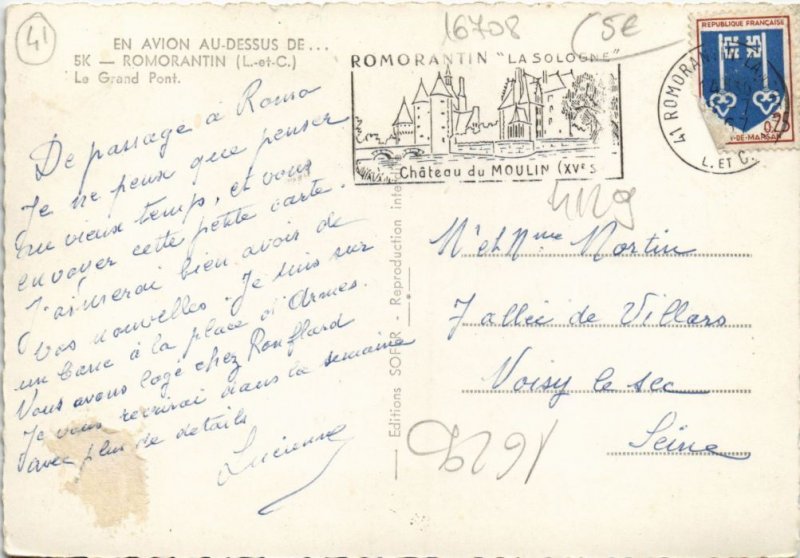 41
16708
5€
EN AVION AU-DESSUS DE...
5K — ROMORANTIN (L.-et-C.)
Le Grand Pont.
ROMORANTIN "LA SOLOGNE"
Château du MOULIN (XVe S
41 ROMORAN
L. ET C.
REPUBLIQUE FRANÇAISE
0,25
-DE-MARSAN
De passage à Romo
Je ne peux que penser
au vieux temps, et vous
envoyer cette petite carte.
J'aimerai bien avoir de
vos nouvelles. Je suis sur
un banc à la place d'Armes.
Vous avons logé chez Ronflard
Je vous recrirai dans la semaine
avec plus de details
Lucienne
Editions SOFER - Reproduction inter
Mr et Mme Martin
7 allée de Villars
Noisy le sec
Seine